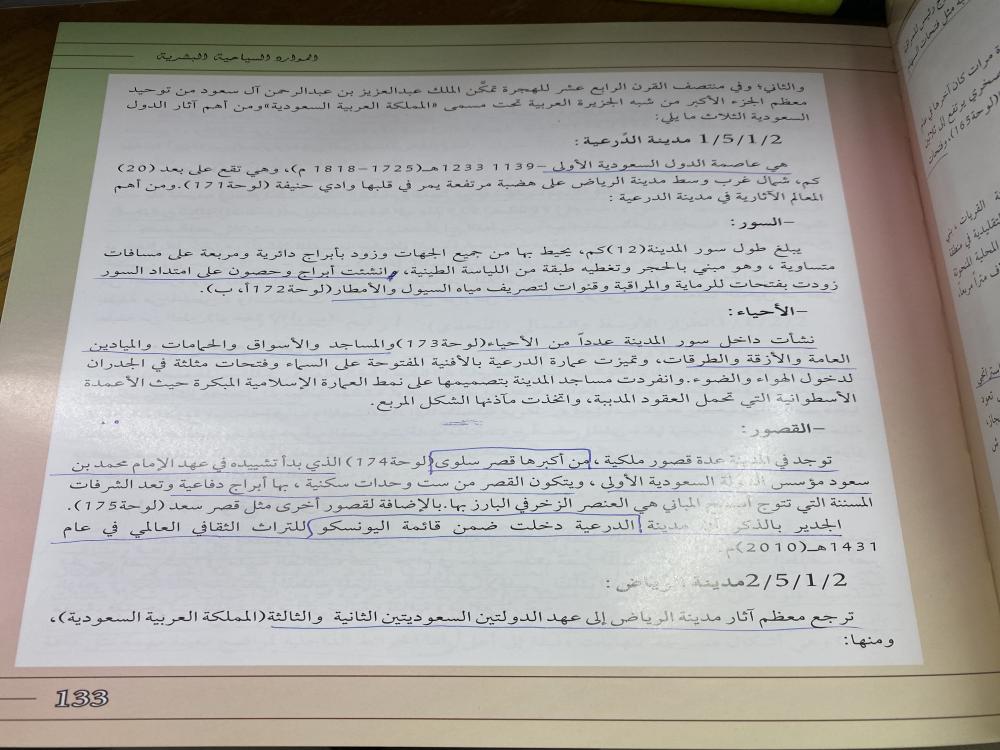 الموارد السياحية البشرية
والثاني؛ وفي منتصف القرن الرابع عشر للهجرة تمكَّن الملك عبدالعزيز بن عبدالرحمن آل سعود من توحيد
معظم الجزء الأكبر من شبه الجزيرة العربية تحت مسمى «المملكة العربية السعودية»ومن أهم آثار الدول
السعودية الثلاث ما يلي:
1/5/1/2 مدينة الدّرعية :
هي عاصمة الدول السعودية الأولى –1139 1233هـ(1725–1818 م)، وهي تقع على بعد (20)
كم، شمال غرب وسط مدينة الرياض على هضبة مرتفعة يمر في قلبها وادي حنيفة (لوحة171).ومن أهم
المعالم الآثارية في مدينة الدرعية :
–السور:
يبلغ طول سور المدينة(12)كم، يحيط بها من جميع الجهات وزود بأبراج دائرية ومربعة على مسافات
متساوية ، وهو مبني بالحجر وتغطيه طبقة من اللياسة الطينية، وانشئت أبراج وحصون على امتداد السور
زودت بفتحات للرماية والمراقبة وقنوات لتصريف مياه السيول والأمطار(لوحة172أ، ب).
–الأحياء:
نشأت داخل سور المدينة عدداً من الأحياء(لوحة173)والمساجد والأسواق والحمامات والميادين
العامة والأزقة والطرقات، وتميزت عمارة الدرعية بالأفنية المفتوحة على السماء وفتحات مثلثة في الجدران
لدخول الهواء والضوء.وانفردت مساجد المدينة بتصميمها على نمط العمارة الإسلامية المبكرة حيث الأعمدة
الأسطوانية التي تحمل العقود المدببة، واتخذت مآذنها الشكل المربع.
–القصور:
توجد في المدينة عدة قصور ملكية ، من أكبرها قصر سلوى(لوحة174) الذي بدأ تشييده في عهد الإمام محمد بن
سعود مؤسس الدولة السعودية الأولى ، ويتكون القصر من ست وحدات سكنية ، بها أبراج دفاعية وتعد الشرفات
المسننة التي تتوج المباني هي العنصر الزخرفي البارز بها.بالإضافة لقصور أخرى مثل قصر سعد (لوحة175).
الجدير بالذكر أن مدينة الدرعية دخلت ضمن قائمة اليونسكو للتراث الثقافي العالمي في عام
1431هـ(2010)م.
2/5/1/2مدينة الرياض :
ترجع معظم آثار مدينة الرياض إلى عهد الدولتين السعوديتين الثانية والثالثة(المملكة العربية السعودية)،
ومنها:
133